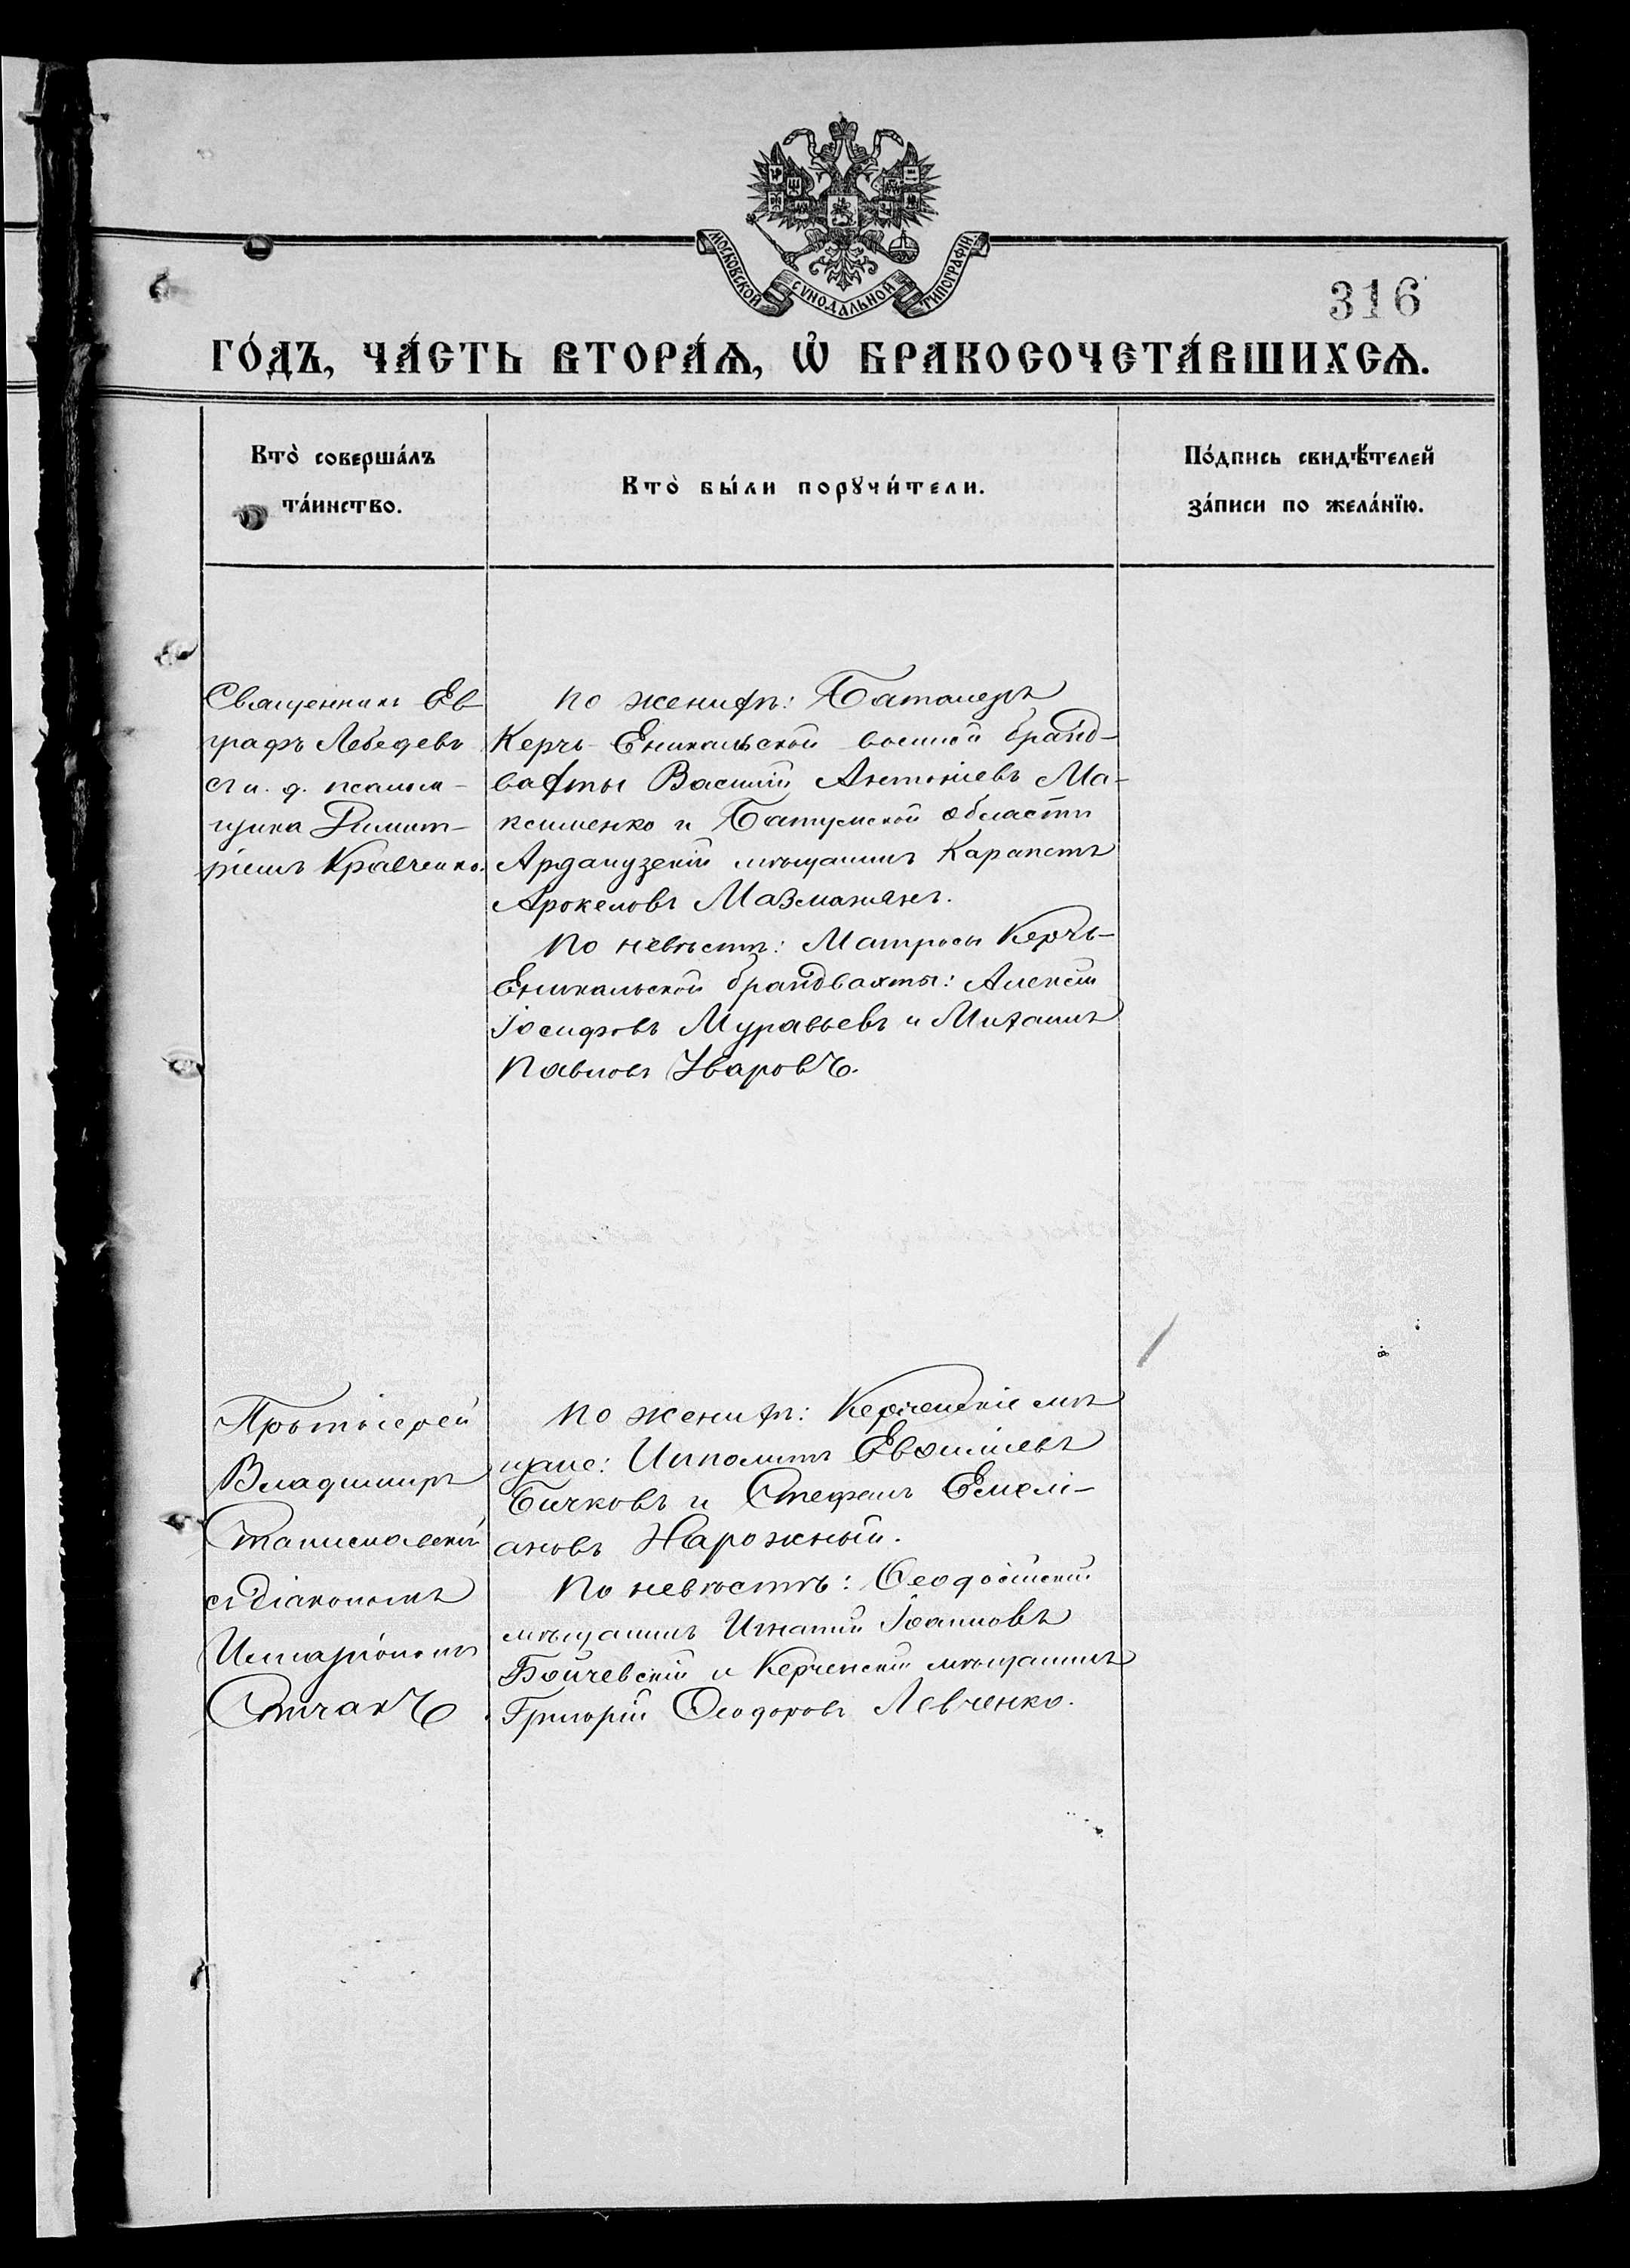 МОСКОВСКОЙ СѴНОДАЛЬНОЙ ТИПОГРАФІИ
316
ГО́ДЪ, ЧА́СТЬ ВТОРА́Ѧ, Ѡ҆ БРАКОСОЧЕТА́ВШИХСѦ.
Кто̀ соверша́лъ
та́инство.
Кто̀ бы́ли порꙋчи́тели.
По́дпись свидѣ́телей
за́писи по жела́нїю.
Священникъ Ев-
графъ Лебедевъ
съ и. д. псалом-
щика Димит-
ріемъ Кравченко.
По женихѣ: Баталеръ
Керчь-Еникальской военной бранд-
вахты Василій Антоніевъ Ма-
ксименко и Батумской области
Ардануzскій мѣщанинъ Карапетъ
Арокеловъ Мазманянъ.
По невѣстѣ: Матросы Керчь-
Еникальской брандвахты: Алексій
Іосифовъ Муравьевъ и Михаилъ
Павловъ Уваровъ.
Протоіерей
Владимиръ
Станиславскій
съ діакономъ
Илларіономъ
Стичакъ.
По женихѣ: Керченскіе мѣ
щане: Ипполитъ Евѳиміевъ
Бичковъ и Стефанъ Емелі-
ановъ Нарожный.
По невѣстѣ: Ѳеодосійскій
мѣщанинъ Игнатій Іоанновъ
Бойчевскій и Керченскій мѣщанинъ
Григорій Ѳеодоровъ Левченко.